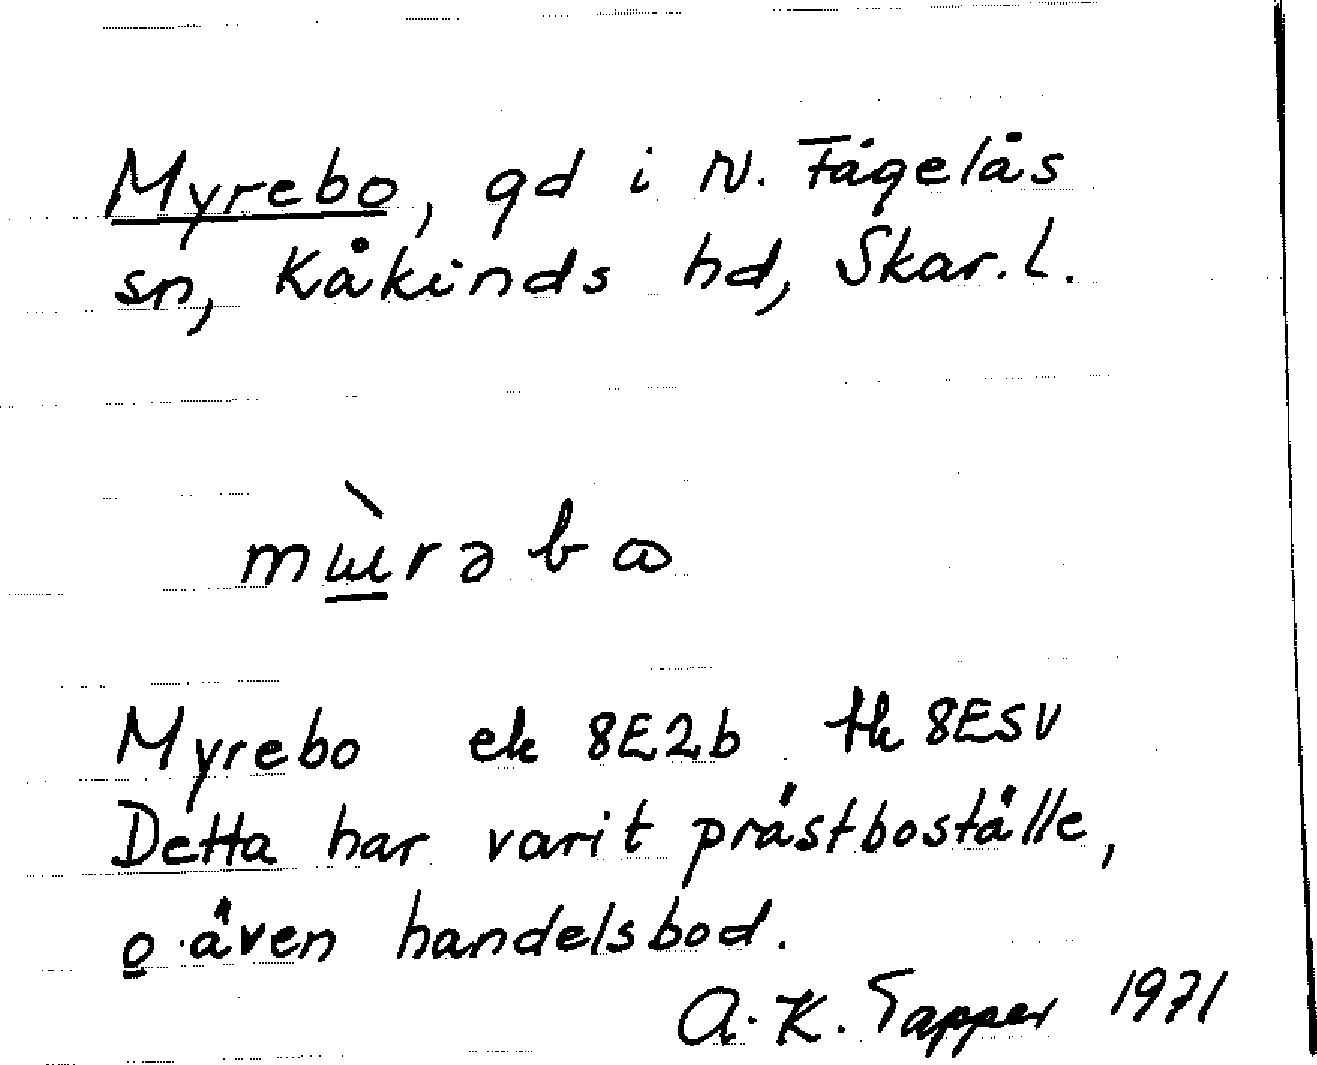 Myrebo, gd i N. Fågelås
sn, Kåkinds hd, Skar. L.
mɯ̀rəbɷ
Myrebo ek 8E2b tk 8E5V
Detta har varit prästboställe,
o även handelsbod.
A. K. Tapper 1971